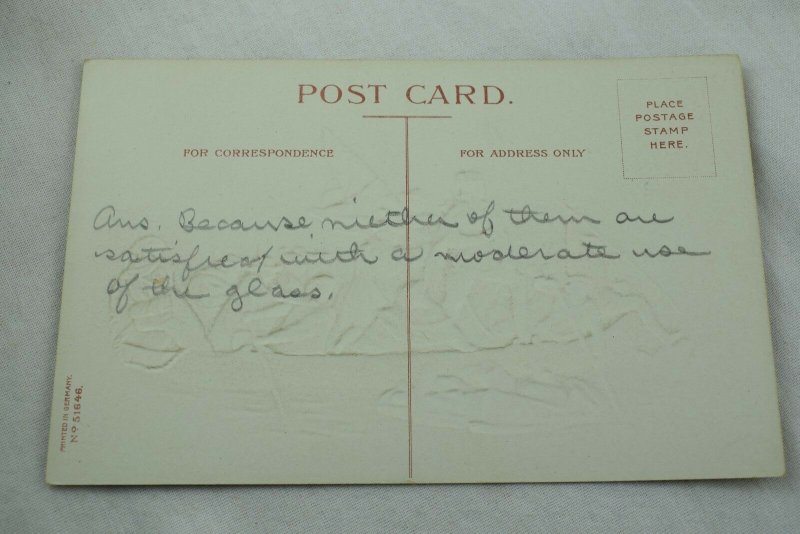 POST CARD.
PLACE
POSTAGE
STAMP
HERE.
FOR CORRESPONDENCE
FOR ADDRESS ONLY
Ans. Because niether of them are
satisfied with a moderate use
of the glass.
PRINTED IN GERMANY.
No 51646.